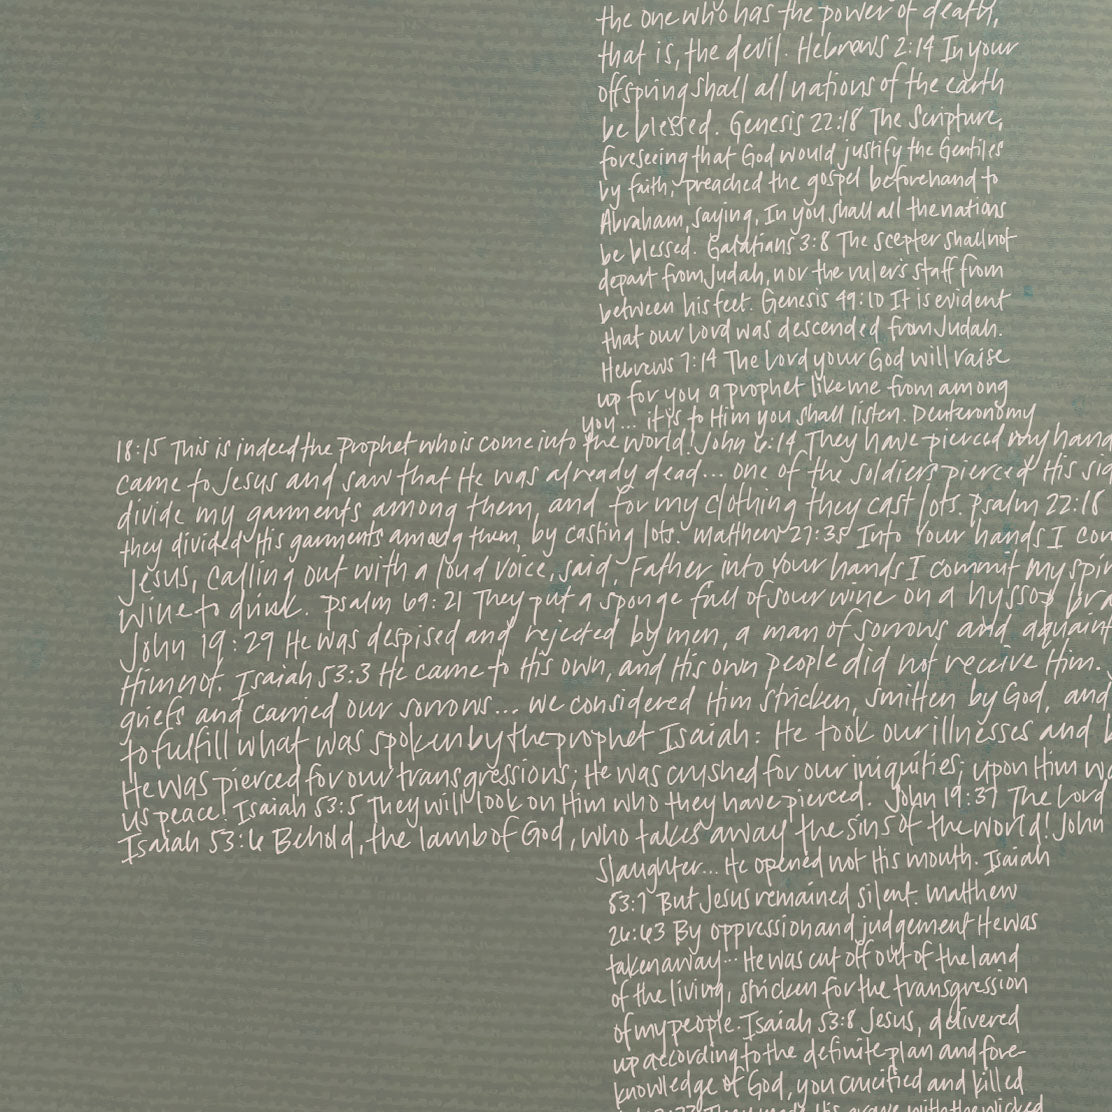 the one who has the power of death,
that is, the devil. Hebrews 2:14 In your
offspring shall all nations of the earth
be blessed. Genesis 22:18 The Scripture,
foreseeing that God would justify the Gentiles
by faith, preached the gospel beforehand to
Abraham, saying, In you shall all the nations
be blessed. Galatians 3:8 The scepter shall not
depart from Judah, nor the ruler's staff from
between his feet. Genesis 49:10 It is evident
that our Lord was descended from Judah.
Hebrews 7:14 The Lord your God will raise
up for you a prophet like me from among
you... it is to Him you shall listen. Deuteronomy
18:15 This is indeed the Prophet who is come into the world! John 6:14 They have pierced my hand
came to Jesus and saw that He was already dead... one of the soldiers pierced His sid
divide my garments among them, and for my clothing they cast lots. Psalm 22:18
they divided His garments among them, by casting lots. Matthew 27:35 Into Your hands I com
Jesus, calling out with a loud voice, said, Father into Your hands I commit my spir
wine to drink. Psalm 69:21 They put a sponge full of sour wine on a hyssop bra
John 19:29 He was despised and rejected by men, a man of sorrows and aquaint
Him not. Isaiah 53:3 He came to His own, and His own people did not receive Him.
griefs and carried our sorrows... we considered Him stricken, smitten by God, and
to fulfill what was spoken by the prophet Isaiah: He took our illnesses and b
He was pierced for our transgressions; He was crushed for our iniquities; upon Him wa
us peace! Isaiah 53:5 They will look on Him who they have pierced. John 19:37 The Lord
Isaiah 53:6 Behold, the lamb of God, who takes away the sins of the world! John
slaughter... He opened not His mouth. Isaiah
53:7 But Jesus remained silent. Matthew
26:63 By oppression and judgement He was
taken away... He was cut off out of the land
of the living, stricken for the transgression
of my people. Isaiah 53:8 Jesus, delivered
up according to the definite plan and fore-
knowledge of God, you crucified and killed
They made His grave with the wicked